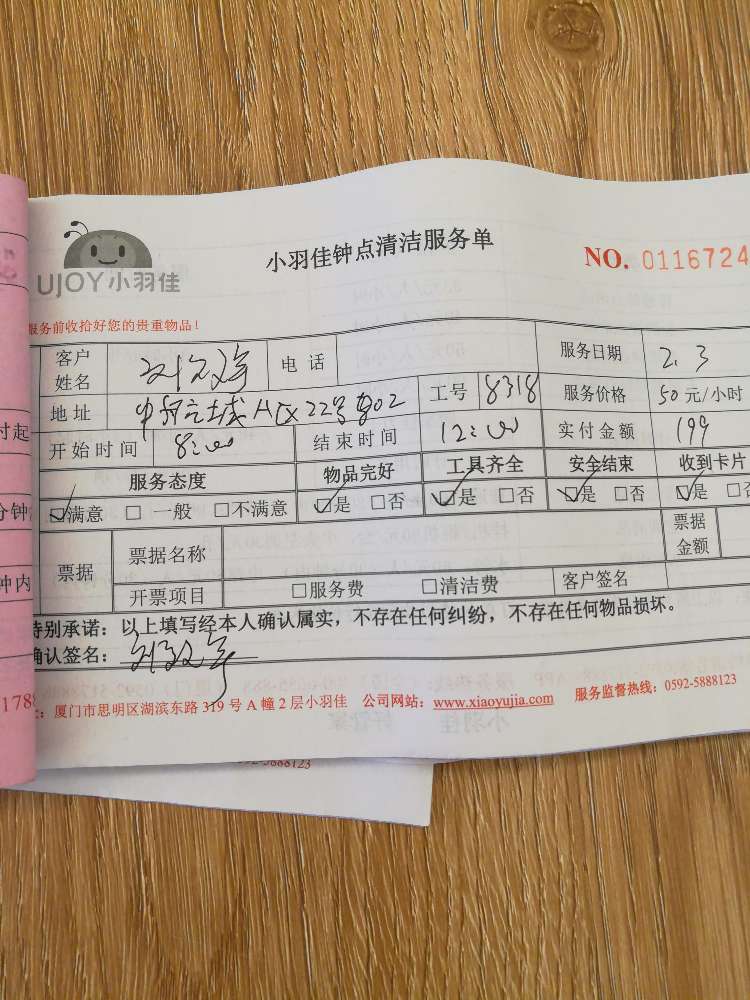 UJOY小羽佳
小羽佳钟点清洁服务单
NO. 0116724
服务前收拾好您的贵重物品!
客户姓名 刘 电话 服务日期 2.3
地址 A区22号 802 工号 8318 服务价格 50元/小时
开始时间 8:00 结束时间 12:00 实付金额 199
服务态度 物品完好 工具齐全 安全结束 收到卡片
满意 □ 一般 □不满意 是 □否 是 □否 是 □否 是
票据 票据名称 票据金额
开票项目 □服务费 □清洁费 客户签名
特别承诺:以上填写经本人确认属实,不存在任何纠纷,不存在任何物品损坏。
确认签名: 刘
厦门市思明区湖滨东路 319 号 A 幢 2 层小羽佳 公司网站:www.xiaoyujia.com 服务监督热线:0592-5888123
付起
分钟
钟内
1788
5888123